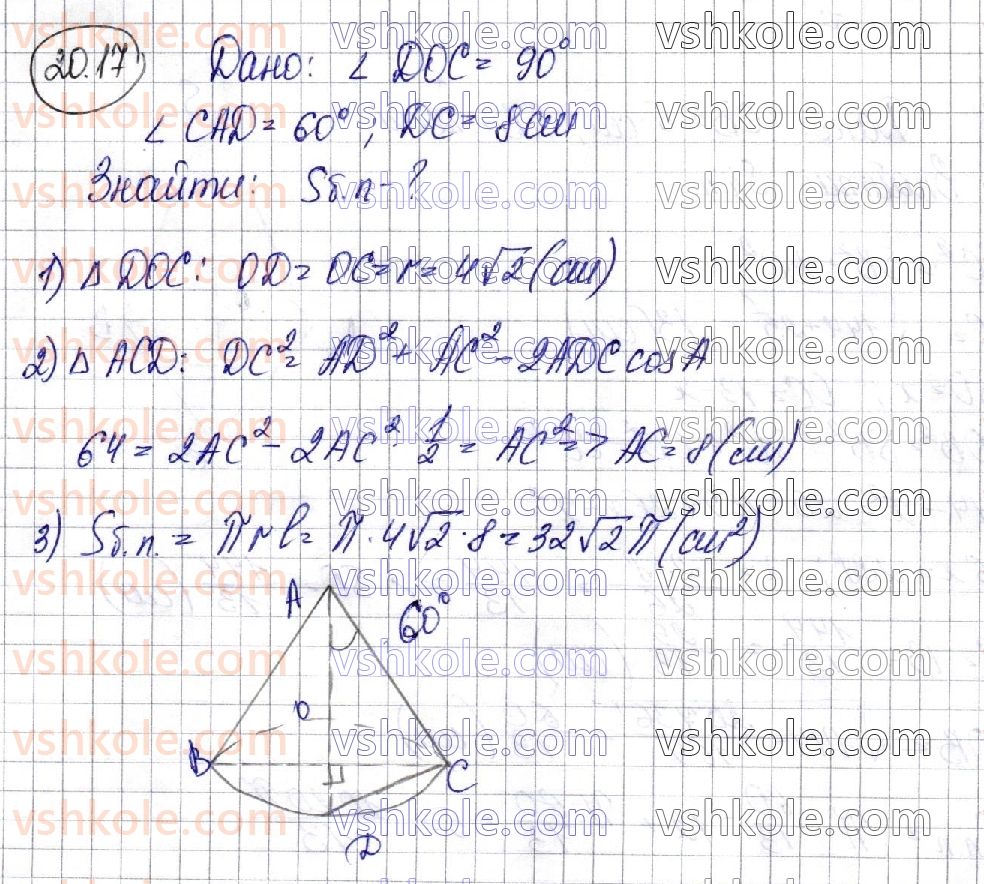 20.17
Дано: ∠ DOC = 90°
∠ CAD = 60°; DC = 8 см
Знайти: Sб.п - ?
1) △ DOC: OD = OC = r = 4√2 (см)
2) △ ACD: DC² = AD² + AC² - 2ADC cos A
64 = 2AC² - 2AC² · 1/2 = AC² => AC = 8 (см)
3) Sб.п. = Πrl = Π · 4√2 · 8 = 32√2 Π (см²)
A
60°
O
B
C
D
vshkole.com